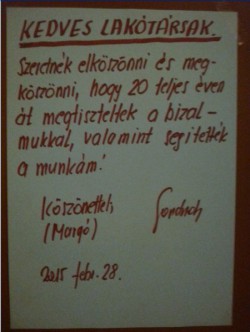 KEDVES LAKÓTÁRSAK.
Szeretnék elköszönni és meg-
köszönni, hogy 20 teljes éven
át megtiszteltek a bizal-
mukkal, valamint segítették
a munkám!
Köszönettel:
(Margó)
2015 febr. 28.